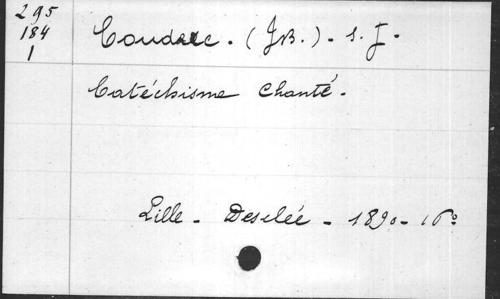 295
184
1
Couderc. (J.B.) - s. J.
Catéchisme Chanté.
Lille - Desclée - 1890 - 16º